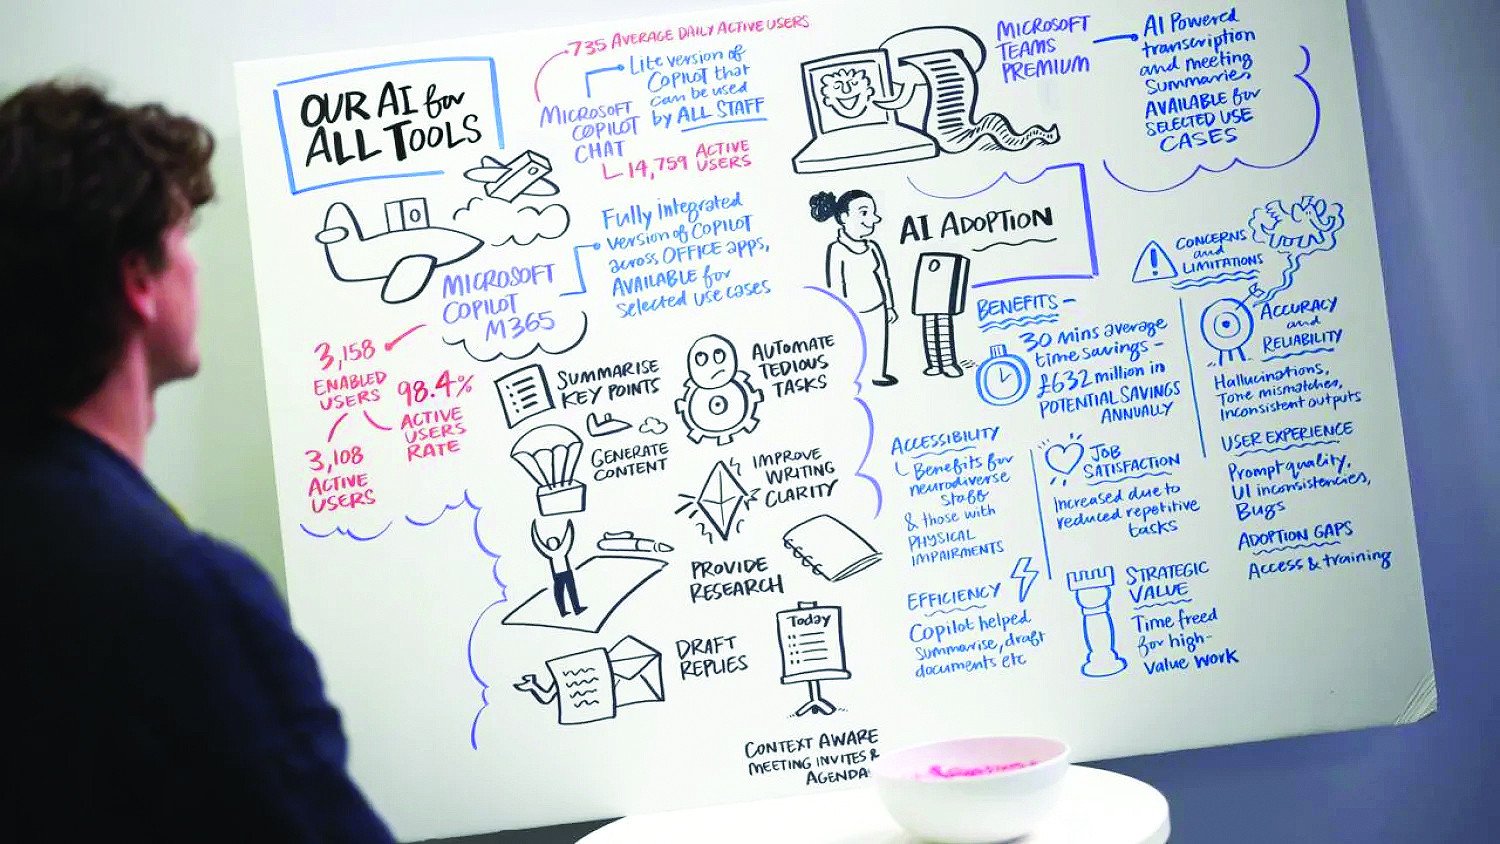 OUR AI for
ALL TOOLS
735 AVERAGE DAILY ACTIVE USERS
Lite version of
COPILOT that
can be used
by ALL STAFF
MICROSOFT
COPILOT
CHAT
14,759 ACTIVE
USERS
Fully integrated
version of COPILOT
across OFFICE apps,
AVAILABLE for
selected use cases
MICROSOFT
COPILOT
M365
3,158
ENABLED
USERS
98.4%
ACTIVE
USERS
RATE
3,108
ACTIVE
USERS
SUMMARISE
KEY POINTS
AUTOMATE
TEDIOUS
TASKS
GENERATE
CONTENT
IMPROVE
WRITING
CLARITY
PROVIDE
RESEARCH
DRAFT
REPLIES
Today
CONTEXT AWARE
MEETING INVITES &
AGENDA
MICROSOFT
TEAMS
PREMIUM
AI Powered
transcription
and meeting
Summaries
AVAILABLE for
SELECTED USE
CASES
AI ADOPTION
BENEFITS -
30 mins average
time savings -
£632 million in
POTENTIAL SAVINGS
ANNUALLY
ACCESSIBILITY
Benefits for
neurodiverse
staff
& those with
PHYSICAL
IMPAIRMENTS
JOB
SATISFACTION
Increased due to
reduced repetitive
tasks
EFFICIENCY
Copilot helped
summarise, draft
documents etc
STRATEGIC
VALUE
Time freed
for high-
value work
CONCERNS
and
LIMITATIONS
ACCURACY
and
RELIABILITY
Hallucinations,
Tone mismatches,
Inconsistent outputs
USER EXPERIENCE
Prompt quality,
UI inconsistencies,
Bugs
ADOPTION GAPS
Access & training